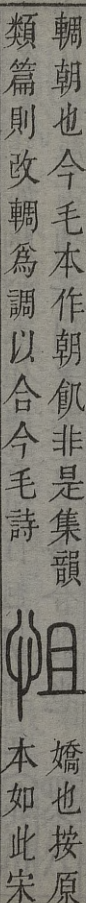 輖朝也今毛本作朝飢非是集韻
類篇則改輖爲調以合今毛詩
怚
嬌也按原
本如此宋